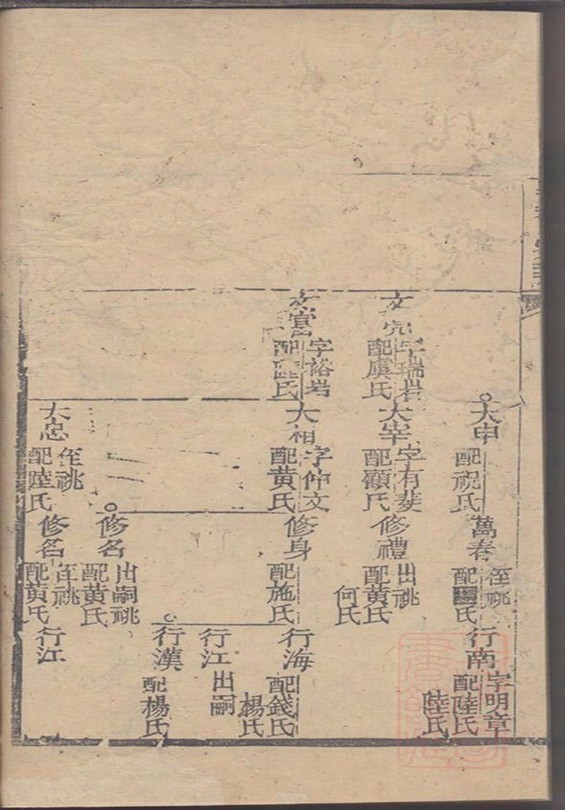 大申
配祝氏
萬春
侄祧
配國氏
行南
字明章
配陸氏
陸氏
字瑞岩
配虞氏
大宰
字有斐
配顧氏
修禮
出祧
配黃氏
何氏
字裕岩
大相
字仲文
配黃氏
修身
配施氏
行海
配錢氏
楊氏
行江
出嗣
行漢
配楊氏
修名
出嗣祧
配黃氏
大忠
侄祧
配陸氏
修名
侄祧
配黃氏
行江